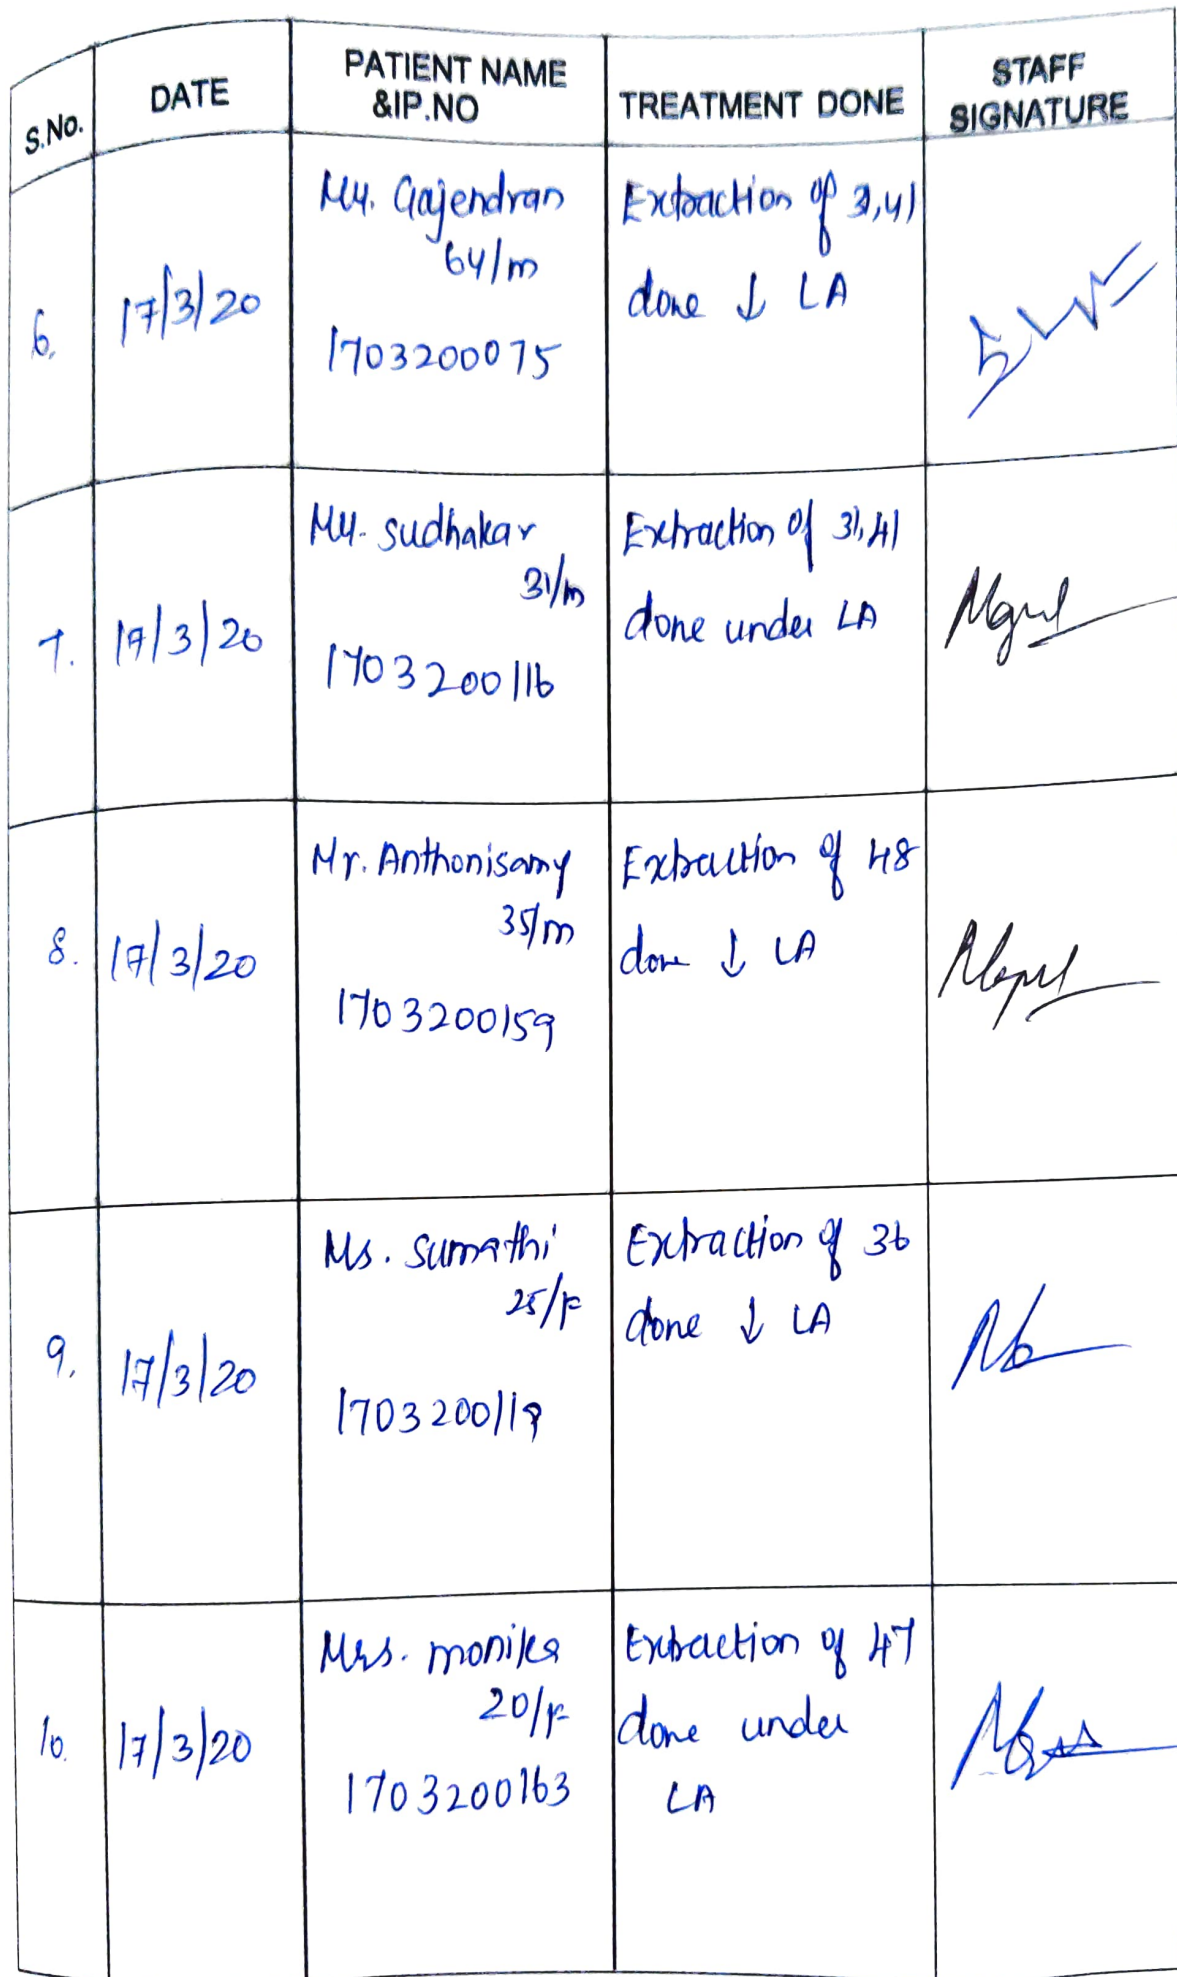 S.No.
DATE
PATIENT NAME
&IP.NO
TREATMENT DONE
STAFF
SIGNATURE
6.
17/3/20
Mr. Gajendran
64/m
1703200075
Extraction of 31,41
done ↓ LA
7.
17/3/20
Mr. Sudhakar
31/m
1703200116
Extraction of 31,41
done under LA
8.
17/3/20
Mr. Anthonisamy
35/m
1703200159
Extraction of 48
done ↓ LA
9.
17/3/20
Ms. Sumathi
25/F
1703200119
Extraction of 36
done ↓ LA
10.
17/3/20
Mrs. monika
20/F
1703200163
Extraction of 47
done under
LA